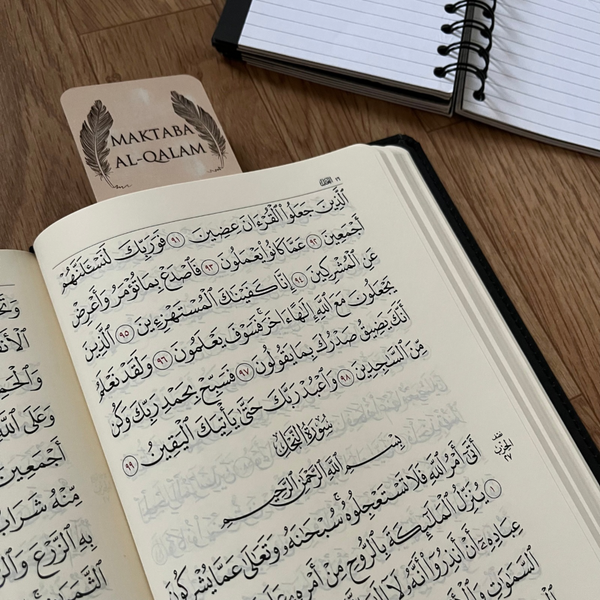 MAKTABA
AL-QALAM
ٱلَّذِينَ جَعَلُوا۟ ٱلْقُرْءَانَ عِضِينَ ٩١ فَوَرَبِّكَ لَنَسْـَٔلَنَّهُمْ
أَجْمَعِينَ ٩٢ عَمَّا كَانُوا۟ يَعْمَلُونَ ٩٣ فَٱصْدَعْ بِمَا تُؤْمَرُ وَأَعْرِضْ
عَنِ ٱلْمُشْرِكِينَ ٩٤ إِنَّا كَفَيْنَـٰكَ ٱلْمُسْتَهْزِءِينَ ٩٥ ٱلَّذِينَ
يَجْعَلُونَ مَعَ ٱللَّهِ إِلَـٰهًا ءَاخَرَ ۚ فَسَوْفَ يَعْلَمُونَ ٩٦ وَلَقَدْ نَعْلَمُ
أَنَّكَ يَضِيقُ صَدْرُكَ بِمَا يَقُولُونَ ٩٧ فَسَبِّحْ بِحَمْدِ رَبِّكَ وَكُن
مِّنَ ٱلسَّـٰجِدِينَ ٩٨ وَٱعْبُدْ رَبَّكَ حَتَّىٰ يَأْتِيَكَ ٱلْيَقِينُ ٩٩
سُورَةُ ٱلنَّحْلِ
بِسْمِ ٱللَّهِ ٱلرَّحْمَـٰنِ ٱلرَّحِيمِ
أَتَىٰٓ أَمْرُ ٱللَّهِ فَلَا تَسْتَعْجِلُوهُ ۚ سُبْحَـٰنَهُۥ وَتَعَـٰلَىٰ عَمَّا يُشْرِكُونَ
١ يُنَزِّلُ ٱلْمَلَـٰٓئِكَةَ بِٱلرُّوحِ مِنْ أَمْرِهِۦ
عِبَادِهِۦٓ أَنْ أَنذِرُوٓا۟ أَنَّهُۥ لَآ
ٱلسَّمَـٰوَٰتِ
وَعَلَى ٱللَّهِ
أَجْمَعِينَ
مِّنْهُ شَرَابٌ
بِهِ ٱلزَّرْعَ